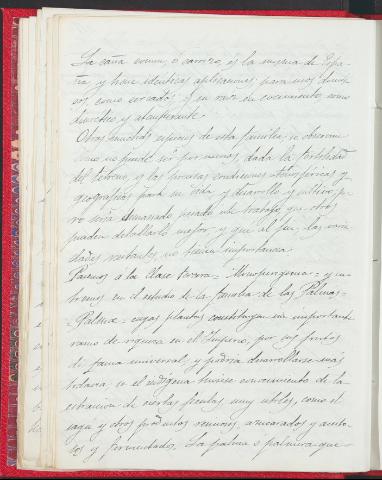 La caña comun, o carrizo, es la misma de Espa-
ña y tiene identicas aplicaciones para usos diver-
sos, como cercados y su raiz en cocimiento, como
diuretico, y
Otras muchas especies de esta familia, se observan
como no puede ser por menos, dada la fertilidad
del terreno, y las condiciones atmosfericas y
geograficas para su vida y desarrollo y cultivo, pe-
ro seria demasiado pesado este trabajo, que otros
pueden detallarlo mejor, y que al fin, las varie-
dades restantes no tienen importancia.
Pasemos á la Clase tercera = Monoperigenia = y en-
tremos en el estudio de la familia de las Palmas =
= Palmæ = cuyas plantas constituyen un importante
ramo de riqueza en el Archipielago, por sus frutos
de fama universal, y podria desarrollarse mas
todavia, si el indigena tuviese conocimiento de la
estraccion de ciertas feculas muy utiles, como el
sagu y otros productos resinosos, azucarados y aceito-
sos y fermentados. La palma o palmera que